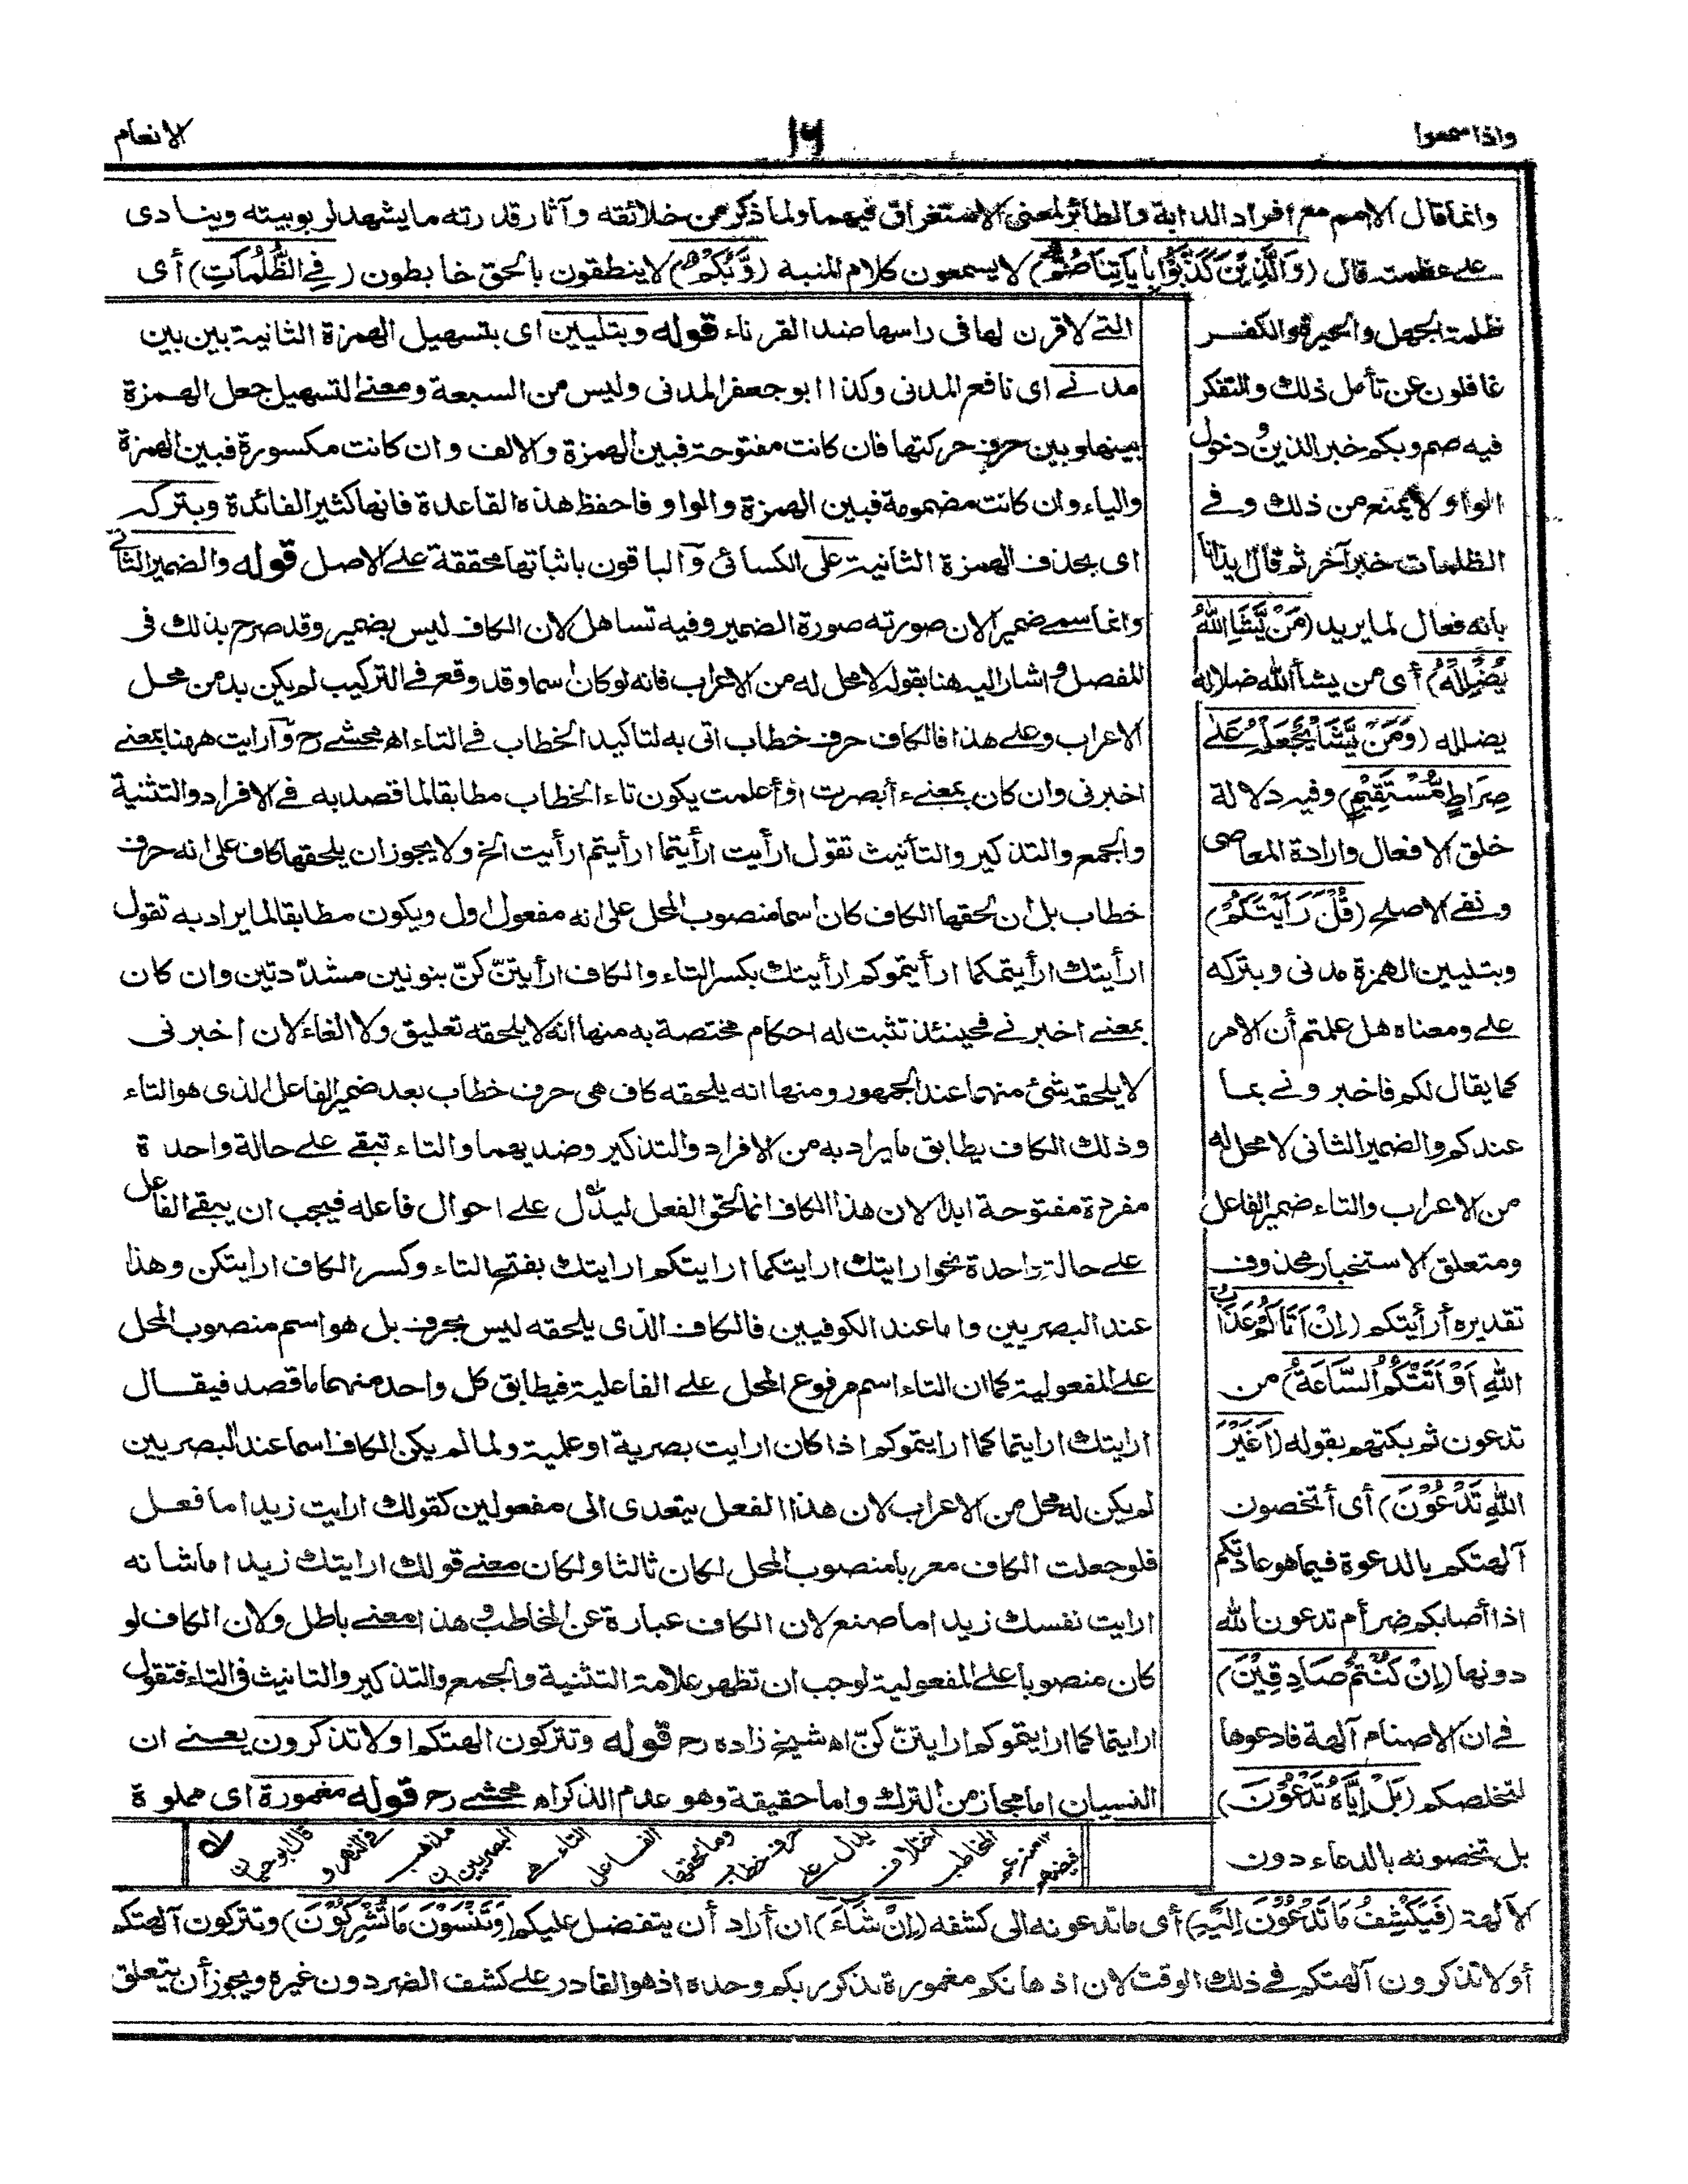 واذا سمعوا
١٦
الانعام
وانما قال الامم مع افراد الدابة والطائر لمعنى الاستغراق فيهما ولما ذكر من خلائقه وآثار قدرته ما يشهد لربوبيته وينادى
على عظمته قال (وَالَّذِيْنَ كَذَّبُوْا بِاٰيَاتِنَا صُمٌّ) لا يسمعون كلام المنبه (وَّبُكْمٌ) لا ينطقون بالحق خابطون (فِى الظُّلُمَاتِ) أى
ظلمة الجهل والحيرة والكفر
غافلون عن تأمل ذلك والتفكر
فيه صم وبكم خبر الذين ودخول
الواو لا يمنع من ذلك وفى
الظلمات خبر آخر ثم قال ايذانا
بانه فعال لما يريد (مَنْ يَّشَاِ اللّٰهُ
يُضْلِلْهُ) أى من يشأ الله ضلاله
يضلله (وَمَنْ يَّشَاْ يَجْعَلْهُ عَلٰى
صِرَاطٍ مُّسْتَقِيْمٍ) وفيه دلالة
خلق الافعال وارادة المعاصى
ونفى الاصلح (قُلْ اَرَاَيْتَكُمْ)
وبتليين الهمزة مدنى وبتركه
على ومعناه هل علمتم أن الامر
كما يقال لكم فاخبرونى بما
عندكم والضمير الثانى لا محل له
من الاعراب والتاء ضمير الفاعل
ومتعلق الاستخبار محذوف
تقديره أرأيتكم (اِنْ اَتَاكُمْ عَذَابُ
اللّٰهِ اَوْ اَتَتْكُمُ السَّاعَةُ) من
تدعون ثم بكتهم بقوله (اَغَيْرَ
اللّٰهِ تَدْعُوْنَ) أى أتخصون
آلهتكم بالدعوة فيما هو عادتكم
اذا أصابكم ضر أم تدعون الله
دونها (اِنْ كُنْتُمْ صَادِقِيْنَ)
فى ان الاصنام آلهة فادعوها
لتخلصكم (بَلْ اِيَّاهُ تَدْعُوْنَ)
بل تخصونه بالدعاء دون
الآلهة (فَيَكْشِفُ مَا تَدْعُوْنَ اِلَيْهِ) أى ما تدعونه الى كشفه (اِنْ شَآءَ) ان أراد أن يتفضل عليكم (وَتَنْسَوْنَ مَا تُشْرِكُوْنَ) وتتركون آلهتكم
أو لا تذكرون آلهتكم فى ذلك الوقت لان اذهانكم مغمورة بذكر ربكم وحده اذ هو القادر على كشف الضر دون غيره ويجوز أن يتعلق
التى لا قرن لها فى راسها ضد القرناء قوله وبتليين اى بتسهيل الهمزة الثانية بين بين
مدنى اى نافع المدنى وكذا ابو جعفر المدنى وليس من السبعة ومعنى التسهيل جعل الهمزة
بينها وبين حرف حركتها فان كانت مفتوحة فبين الهمزة والالف وان كانت مكسورة فبين الهمزة
والياء وان كانت مضمومة فبين الهمزة والواو فاحفظ هذه القاعدة فانها كثير الفائدة وبتركه
اى بحذف الهمزة الثانية على الكسائى والباقون باثباتها محققة على الاصل قوله والضمير الثانى
وانما سمى ضميرا لان صورته صورة الضمير وفيه تساهل لان الكاف ليس بضمير وقد صرح بذلك فى
المفصل واشار اليه هنا بقوله لا محل له من الاعراب فانه لو كان اسما وقد وقع فى التركيب لم يكن بد من محل
الاعراب وعلى هذا فالكاف حرف خطاب اتى به لتاكيد الخطاب فى التاء اه محشى رح وآرايت ههنا بمعنى
اخبرنى وان كان بمعنى ءأبصرت أو أعلمت يكون تاء الخطاب مطابقا لما قصد به فى الافراد والتثنية
والجمع والتذكير والتأنيث تقول ارأيت ارأيتما ارأيتم ارأيت الخ ولا يجوز ان يلحقها كاف على انه حرف
خطاب بل ان لحقها الكاف كان اسما منصوب المحل على انه مفعول اول ويكون مطابقا لما يراد به تقول
ارأيتك ارأيتمكما ارأيتموكم ارأيتك بكسر التاء والكاف ارأيتنّ كنّ بنونين مشدّدتين وان كان
بمعنى اخبرنى فحينئذ تثبت له احكام مختصة به منها انه لا يلحقه تعليق ولا الغاء لان اخبرنى
لا يلحقه شئ منهما عند الجمهور ومنها انه يلحقه كاف هى حرف خطاب بعد ضمير الفاعل الذى هو التاء
وذلك الكاف يطابق ما يراد به من الافراد والتذكير وضديهما والتاء تبقى على حالة واحدة
مفردة مفتوحة ابدا لان هذا الكاف انما لحق الفعل ليدل على احوال فاعله فيجب ان يبقى الفاعل
على حالة واحدة نحو ارايتك ارايتكما ارايتكم ارايتك بفتح التاء وكسر الكاف ارايتكن وهذا
عند البصريين واما عند الكوفيين فالكاف الذى يلحقه ليس بحرف بل هو اسم منصوب المحل
على المفعولية كما ان التاء اسم مرفوع المحل على الفاعلية فيطابق كل واحد منهما ما قصد فيقال
ارايتك ارايتما كما ارايتموكم اذا كان ارايت بصرية او علمية ولما لم يكن الكاف اسما عند البصريين
لم يكن له محل من الاعراب لان هذا الفعل يتعدى الى مفعولين كقولك ارايت زيدا ما فعل
فلو جعلت الكاف معربا منصوب المحل لكان ثالثا ولكان معنى قولك ارايتك زيدا ما شانه
ارايت نفسك زيدا ما صنع لان الكاف عبارة عن المخاطب وهذا معنى باطل ولان الكاف لو
كان منصوبا على المفعولية لوجب ان تظهر علامة التثنية والجمع والتذكير والتانيث فى التاء فتقول
ارايتما كما ارايتموكم ارايتنّ كنّ اه شيخ زاده رح قوله وتتركون الهتكم او لا تذكرون يعنى ان
النسيان اما مجاز من الترك واما حقيقة وهو عدم الذكر اه محشى رح قوله مغمورة اى مملوة
قال ابو حيان
فى النهر و
مذهب
البصريين ان
التاء هى
الفاعل
وما لحقها
حرف خطاب
يدل على
اختلاف
المخاطب